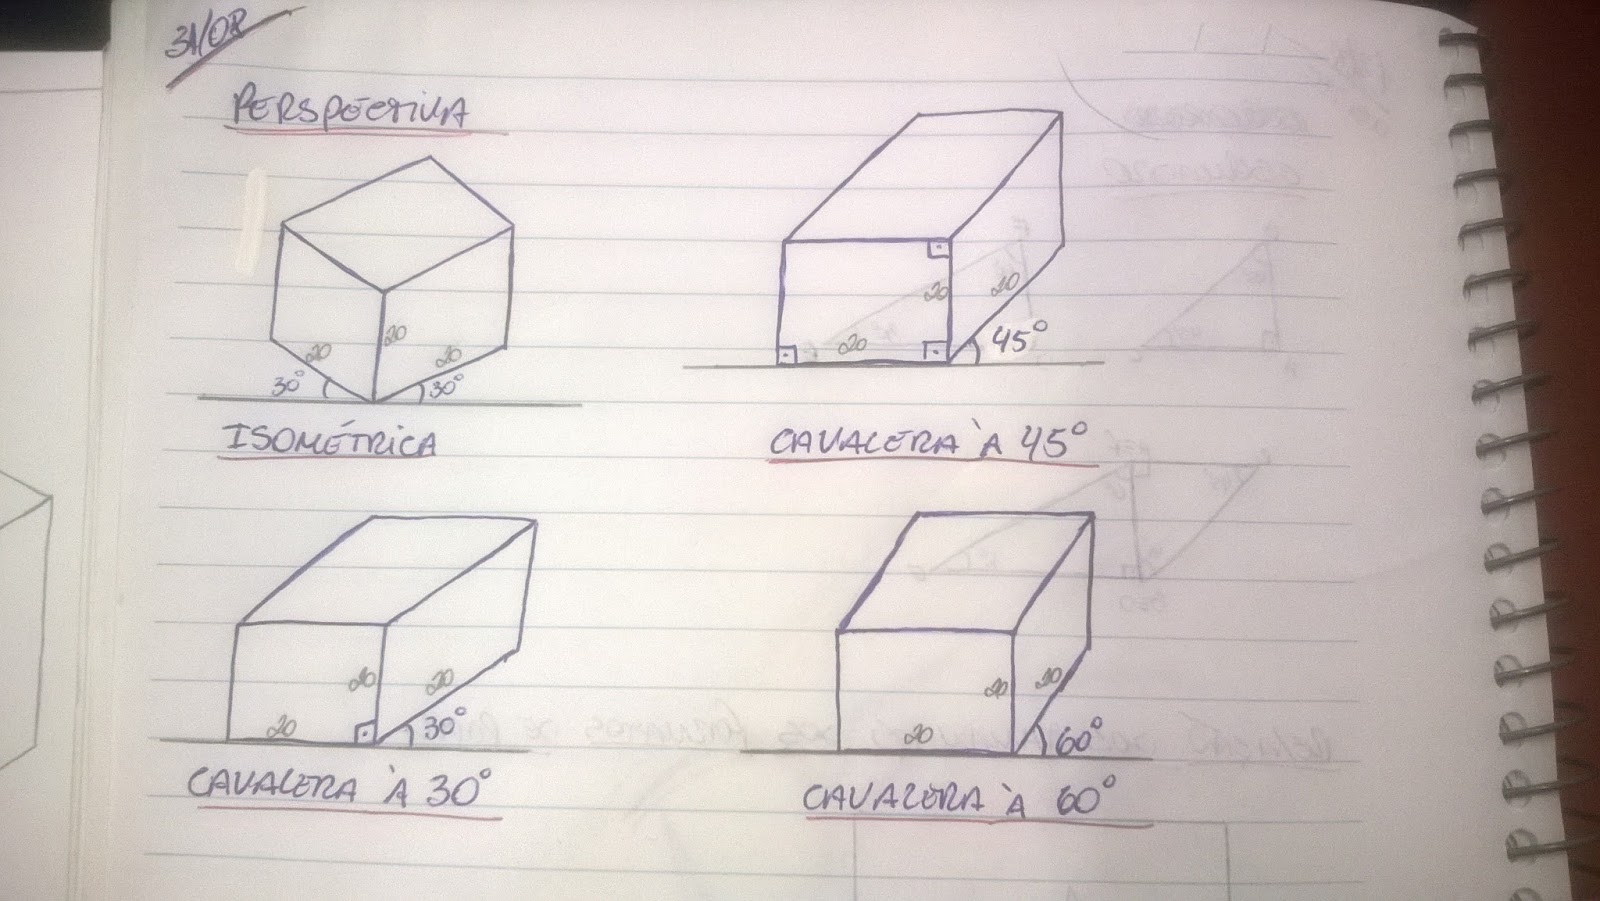 PERSPECTIVA
20
20
20
30°
30°
ISOMÉTRICA
20
20
20
45°
CAVALERA À 45°
20
20
20
30°
CAVALERA À 30°
20
20
20
60°
CAVALERA À 60°